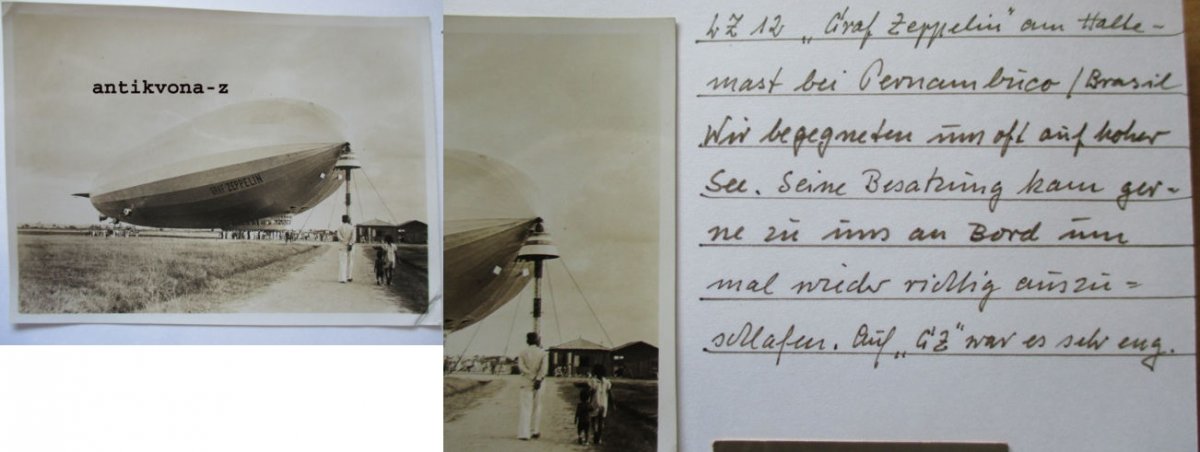 antikvona-z
GRAF ZEPPELIN
LZ 12 „Graf Zeppelin" am Halte-
mast bei Pernambuco / Brasil
Wir begegneten uns oft auf hoher
See. Seine Besatzung kam ger-
ne zu uns an Bord um
mal wieder richtig auszu=
schlafen. Auf „GZ" war es sehr eng.